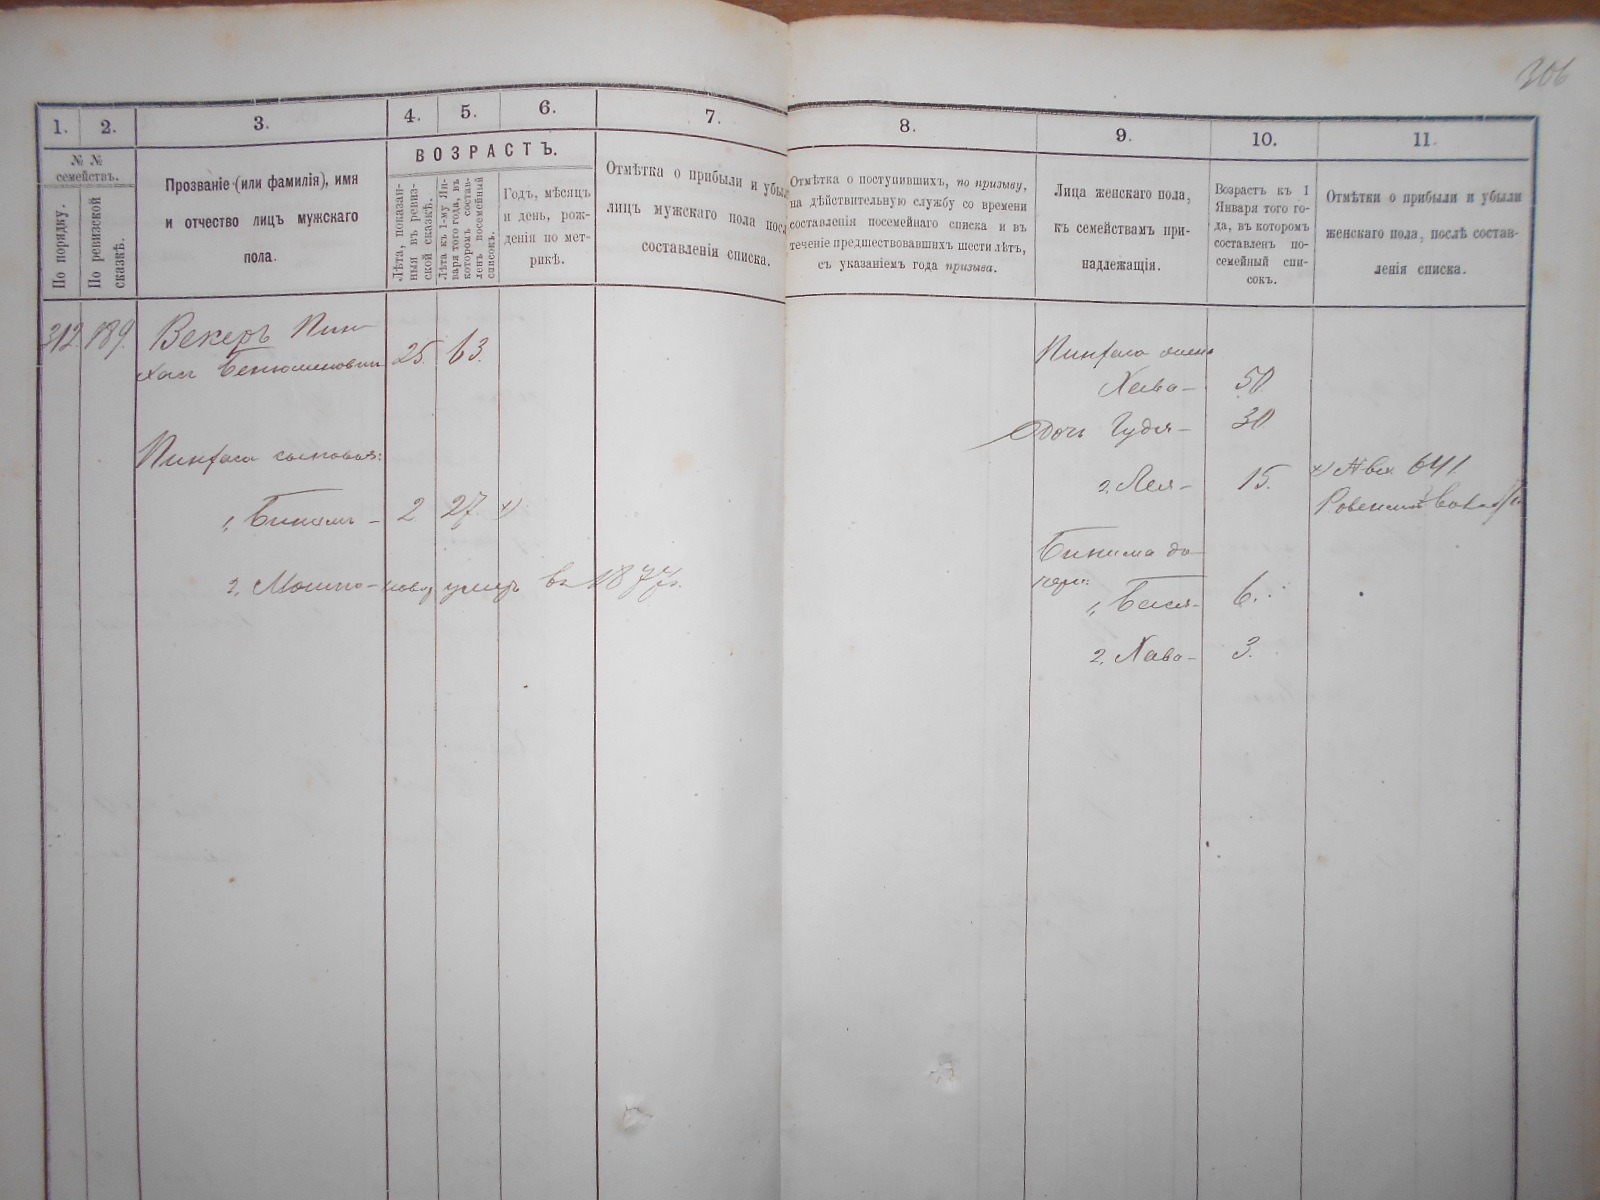 306
1. 2. 3. 4. 5. 6. 7. 8. 9. 10. 11.
№ №
семействъ.
По порядку.
По ревизской
сказкѣ.
Прозваніе (или фамилія), имя
и отчество лицъ мужскаго
пола.
ВОЗРАСТЪ.
Лѣта, показан-
ныя въ ревиз-
ской сказкѣ.
Лѣта къ 1-му Ян-
варя того года, въ
которомъ состав-
ленъ посемейный
списокъ.
Годъ, мѣсяцъ
и день, рож-
денія по мет-
рикѣ.
Отмѣтка о прибыли и убыл
лицъ мужскаго пола посл
составленія списка.
Отмѣтка о поступившихъ, по призыву,
на дѣйствительную службу со времени
составленія посемейнаго списка и въ
теченіе предшествовавшихъ шести лѣтъ,
съ указаніемъ года призыва.
Лица женскаго пола,
къ семействамъ при-
надлежащія.
Возрастъ къ 1
Января того го-
да, въ которомъ
составленъ по-
семейный спи-
сокъ.
Отмѣтки о прибыли и убыли
женскаго пола, послѣ состав-
ленія списка.
312. 189. Векеръ Пин-
хасъ 25. 63.
Пинхаса сыновья:
1, Бинимъ - 2 27. х)
2, Мошко - новор. умеръ въ 1877 г.
Пинхаса жена
Хава - 50
Дочь Гудя - 30
2, Лея - 15. х) 641
Бинима до-
чери:
1, Бася - 6.
2, Хава - 3.